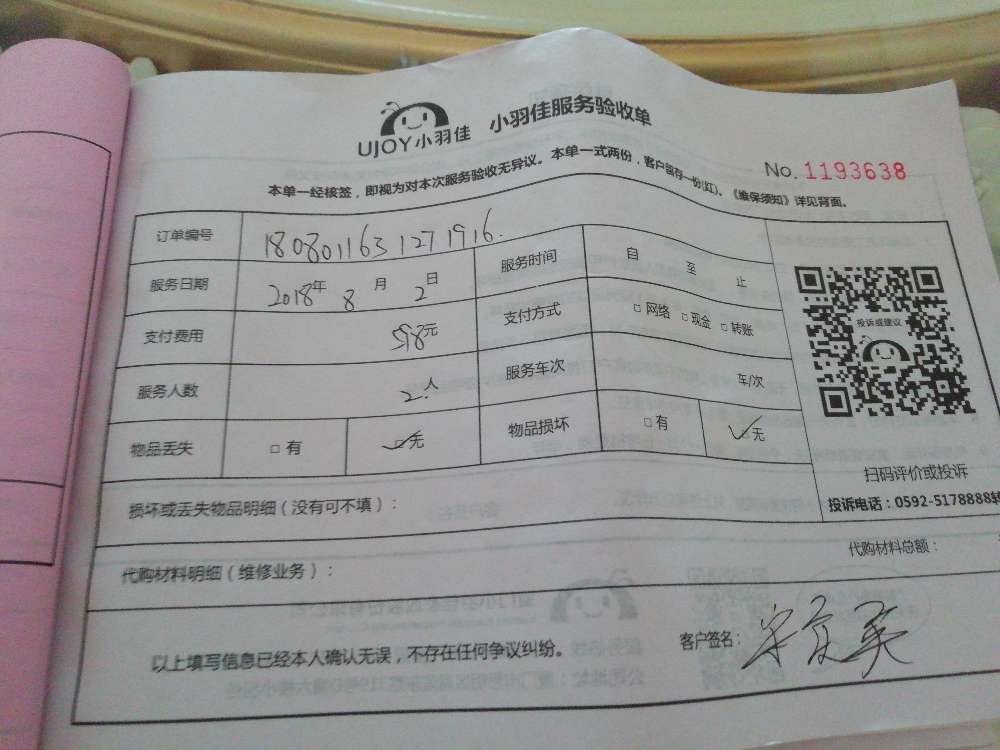 UJOY小羽佳 小羽佳服务验收单
No. 1193638
本单一经核签，即视为对本次服务验收无异议。本单一式两份，客户留存一份(红)。《维保须知》详见背面。
订单编号 1808011631271916.
服务日期 2018年 8 月 2日 服务时间 自 至 止
支付费用 598元 支付方式 □ 网络 □ 现金 □ 转账
投诉或建议
服务人数 2.人 服务车次 车/次
物品丢失 □ 有 ✓□ 无 物品损坏 □ 有 ✓□ 无
扫码评价或投诉
投诉电话：0592-5178888转
损坏或丢失物品明细（没有可不填）：
代购材料明细（维修业务）： 代购材料总额：
以上填写信息已经本人确认无误，不存在任何争议纠纷。 客户签名：